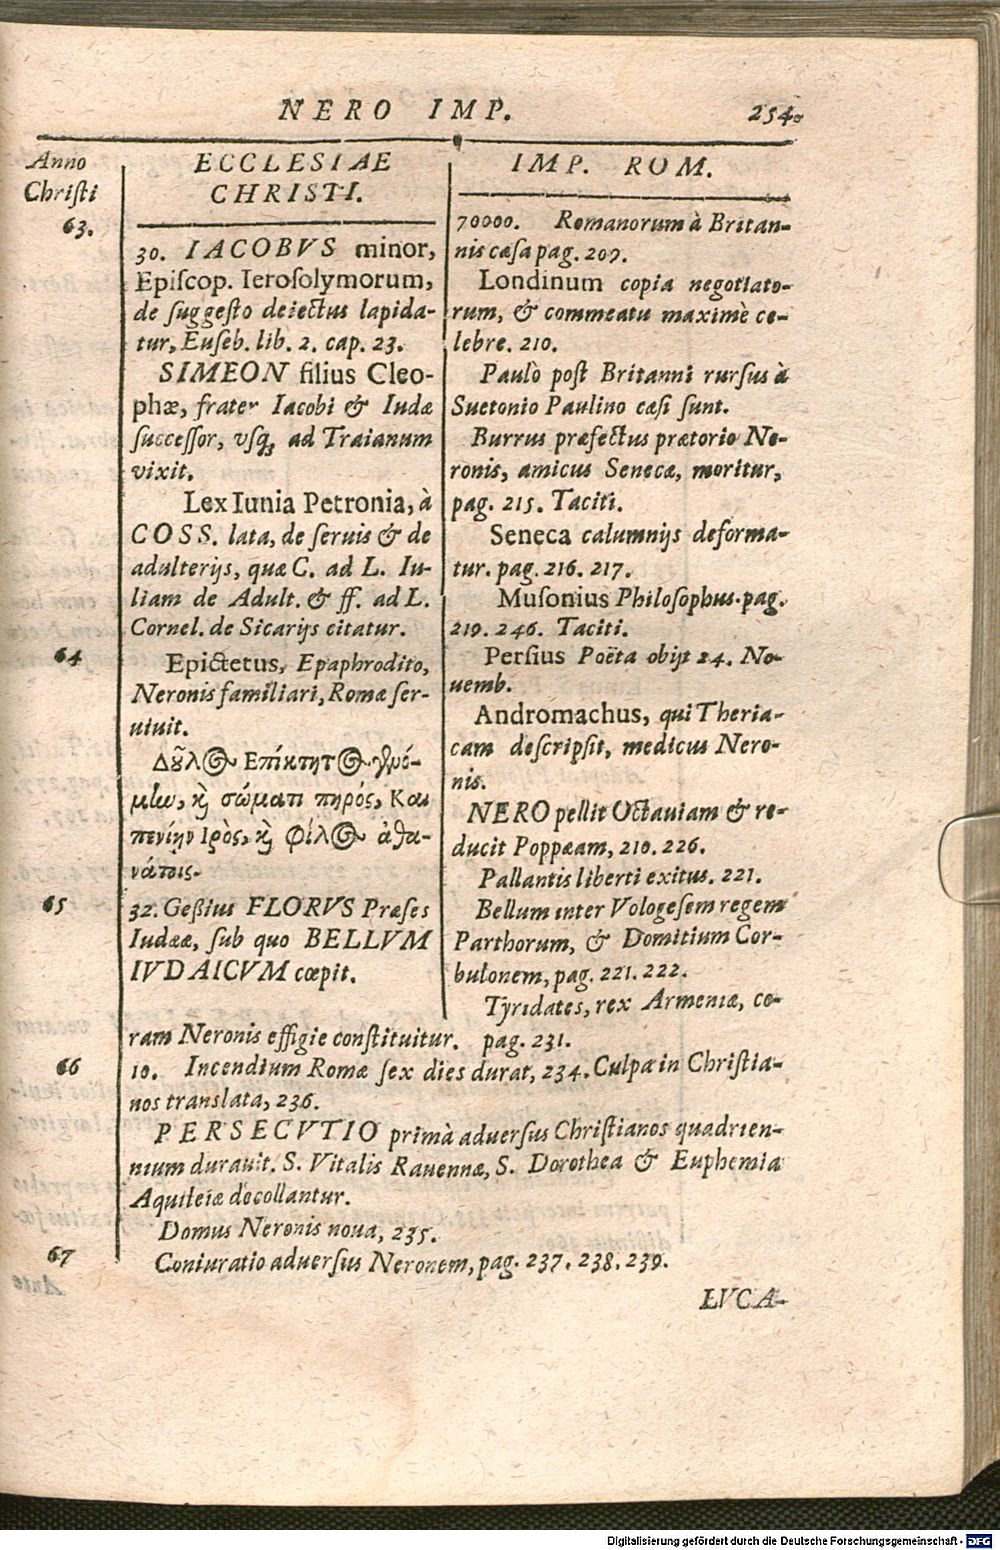 NERO IMP. 254.
Anno
Christi
63.
ECCLESIAE
CHRISTI.
30. IACOBVS minor,
Episcop. Ierosolymorum,
de suggesto deiectus lapida-
tur, Euseb. lib. 2. cap. 23.
SIMEON filius Cleo-
phæ, frater Iacobi & Iudæ
successor, vsq; ad Traianum
vixit.
Lex Iunia Petronia, à
COSS. lata, de seruis & de
adulterijs, quæ C. ad L. Iu-
liam de Adult. & ff. ad L.
Cornel. de Sicarijs citatur.
64
Epictetus, Epaphrodito,
Neronis familiari, Romæ ser-
uiuit.
Δοῦλος Επίκτητος γενό-
μίω, κὶ σώματι πηρός, Και
πενίην Ιρὸς, κὶ φίλος ἀθα-
νάτοις.
65
32. Geßius FLORVS Præses
Iudææ, sub quo BELLVM
IVDAICVM cœpit.
IMP. ROM.
70000. Romanorum à Britan-
nis cæsa pag. 209.
Londinum copia negotiato-
rum, & commeatu maximè ce-
lebre. 210.
Paulò post Britanni rursus à
Suetonio Paulino cæsi sunt.
Burrus præfectus prætorio Ne-
ronis, amicus Senecæ, moritur,
pag. 215. Taciti.
Seneca calumnijs deforma-
tur. pag. 216. 217.
Musonius Philosophus. pag.
219. 246. Taciti.
Persius Poëta obijt 24. No-
uemb.
Andromachus, qui Theria-
cam descripsit, medicus Nero-
nis.
NERO pellit Octauiam & re-
ducit Poppæam, 210. 226.
Pallantis liberti exitus. 221.
Bellum inter Vologesem regem
Parthorum, & Domitium Cor-
bulonem, pag. 221. 222.
Tyridates, rex Armeniæ, co-
ram Neronis effigie constituitur. pag. 231.
66
10. Incendium Romæ sex dies durat, 234. Culpa in Christia-
nos translata, 236.
PERSECVTIO primà aduersus Christianos quadrien-
nium durauit. S. Vitalis Rauennæ, S. Dorothea & Euphemia
Aquileiæ decollantur.
Domus Neronis noua, 235.
67
Coniuratio aduersus Neronem, pag. 237. 238. 239.
LVCA-
Digitalisierung gefördert durch die Deutsche Forschungsgemeinschaft - DFG